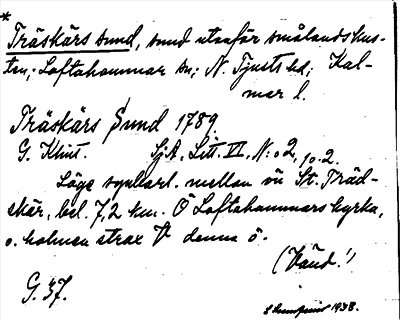 * Träskärs sund, sund utanför smålandskus-
ten; Loftahammar sn; N. Tjusts hd; Kal-
mar l.
Träskärs Sund 1789.
G. Klint. SjA. Litt. VI, N:o 2, 10. 2.
Läge synbarl. mellan ön St. Träd-
skär, bel. 7,2 km. Ö Loftahammars kyrka,
o. holmen strax V denna ö.
(Vänd!)
G. 37.
1938.